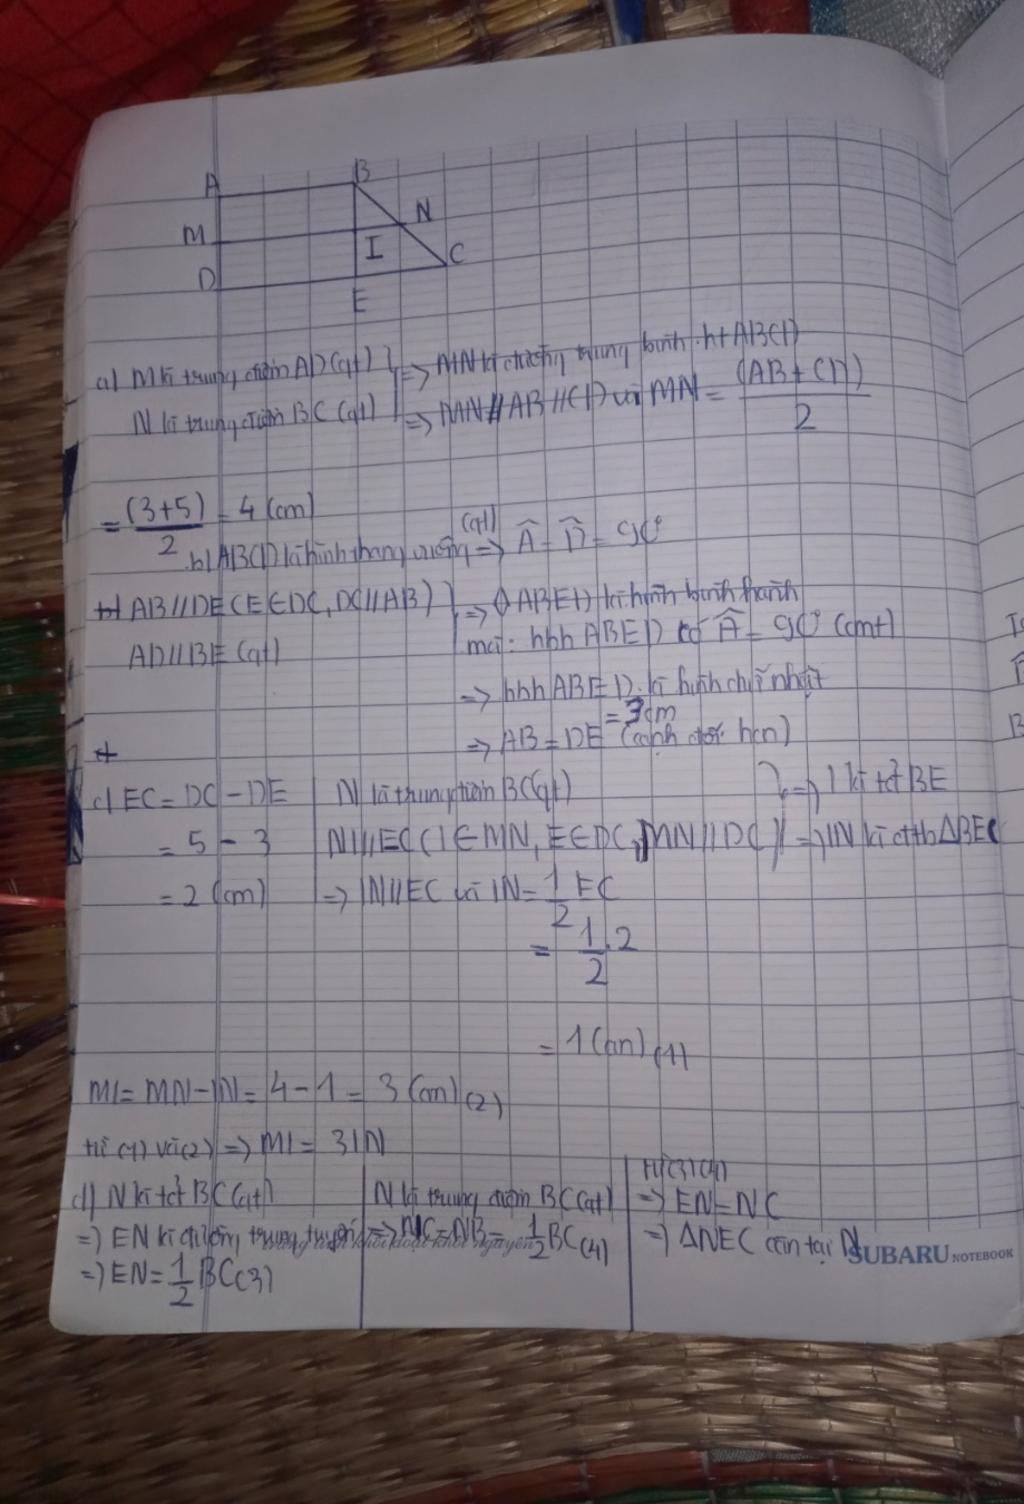 A
B
M
N
I
C
D
E
a) M là trung điểm AD (gt) } => MN là đường trung bình ht ABCD
N là trung điểm BC (gt) => MN // AB // CD và MN = (AB + CD)/2
= (3+5)/2 = 4 (cm)
b) ABCD là hình thang vuông (gt) => Â = D̂ = 90°
AB // DE (E ∈ DC, DC // AB) } => ◊ ABED là hình bình hành
AD // BE (gt)
mà: hbh ABED có Â = 90° (cmt)
=> hbh ABED là hình chữ nhật
=> AB = DE = 3cm (cạnh đối hcn)
c) EC = DC - DE
= 5 - 3
= 2 (cm)
N là trung điểm BC (gt)
NI // EC (I ∈ MN, E ∈ DC, MN // DC) } => I là tđ BE => IN là đtb ΔBEC
=> IN // EC và IN = 1/2 EC
= 1/2 . 2
= 1 (cm) (1)
MI = MN - IN = 4 - 1 = 3 (cm) (2)
từ (1) và (2) => MI = 3IN
d) N là tđ BC (gt)
=> EN là đường trung tuyến
=> EN = 1/2 BC (3)
N là trung điểm BC (gt)
=> NC = NB = 1/2 BC (4)
Từ (3) (4)
=> EN = NC
=> ΔNEC cân tại N
SUBARU NOTEBOOK